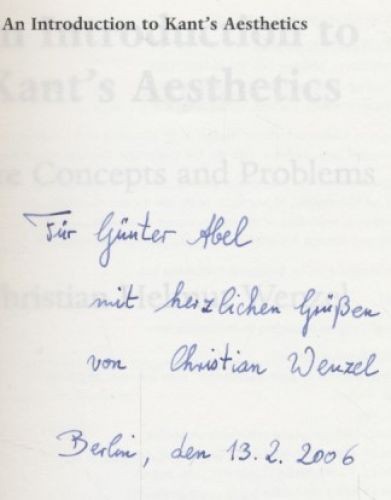 An Introduction to Kant's Aesthetics
n Introduction to
Kant's Aesthetics
re Concepts and Problems
hristian Helmut Wenzel
Für Günter Abel
mit herzlichen Grüßen
von Christian Wenzel
Berlin, den 13.2.2006